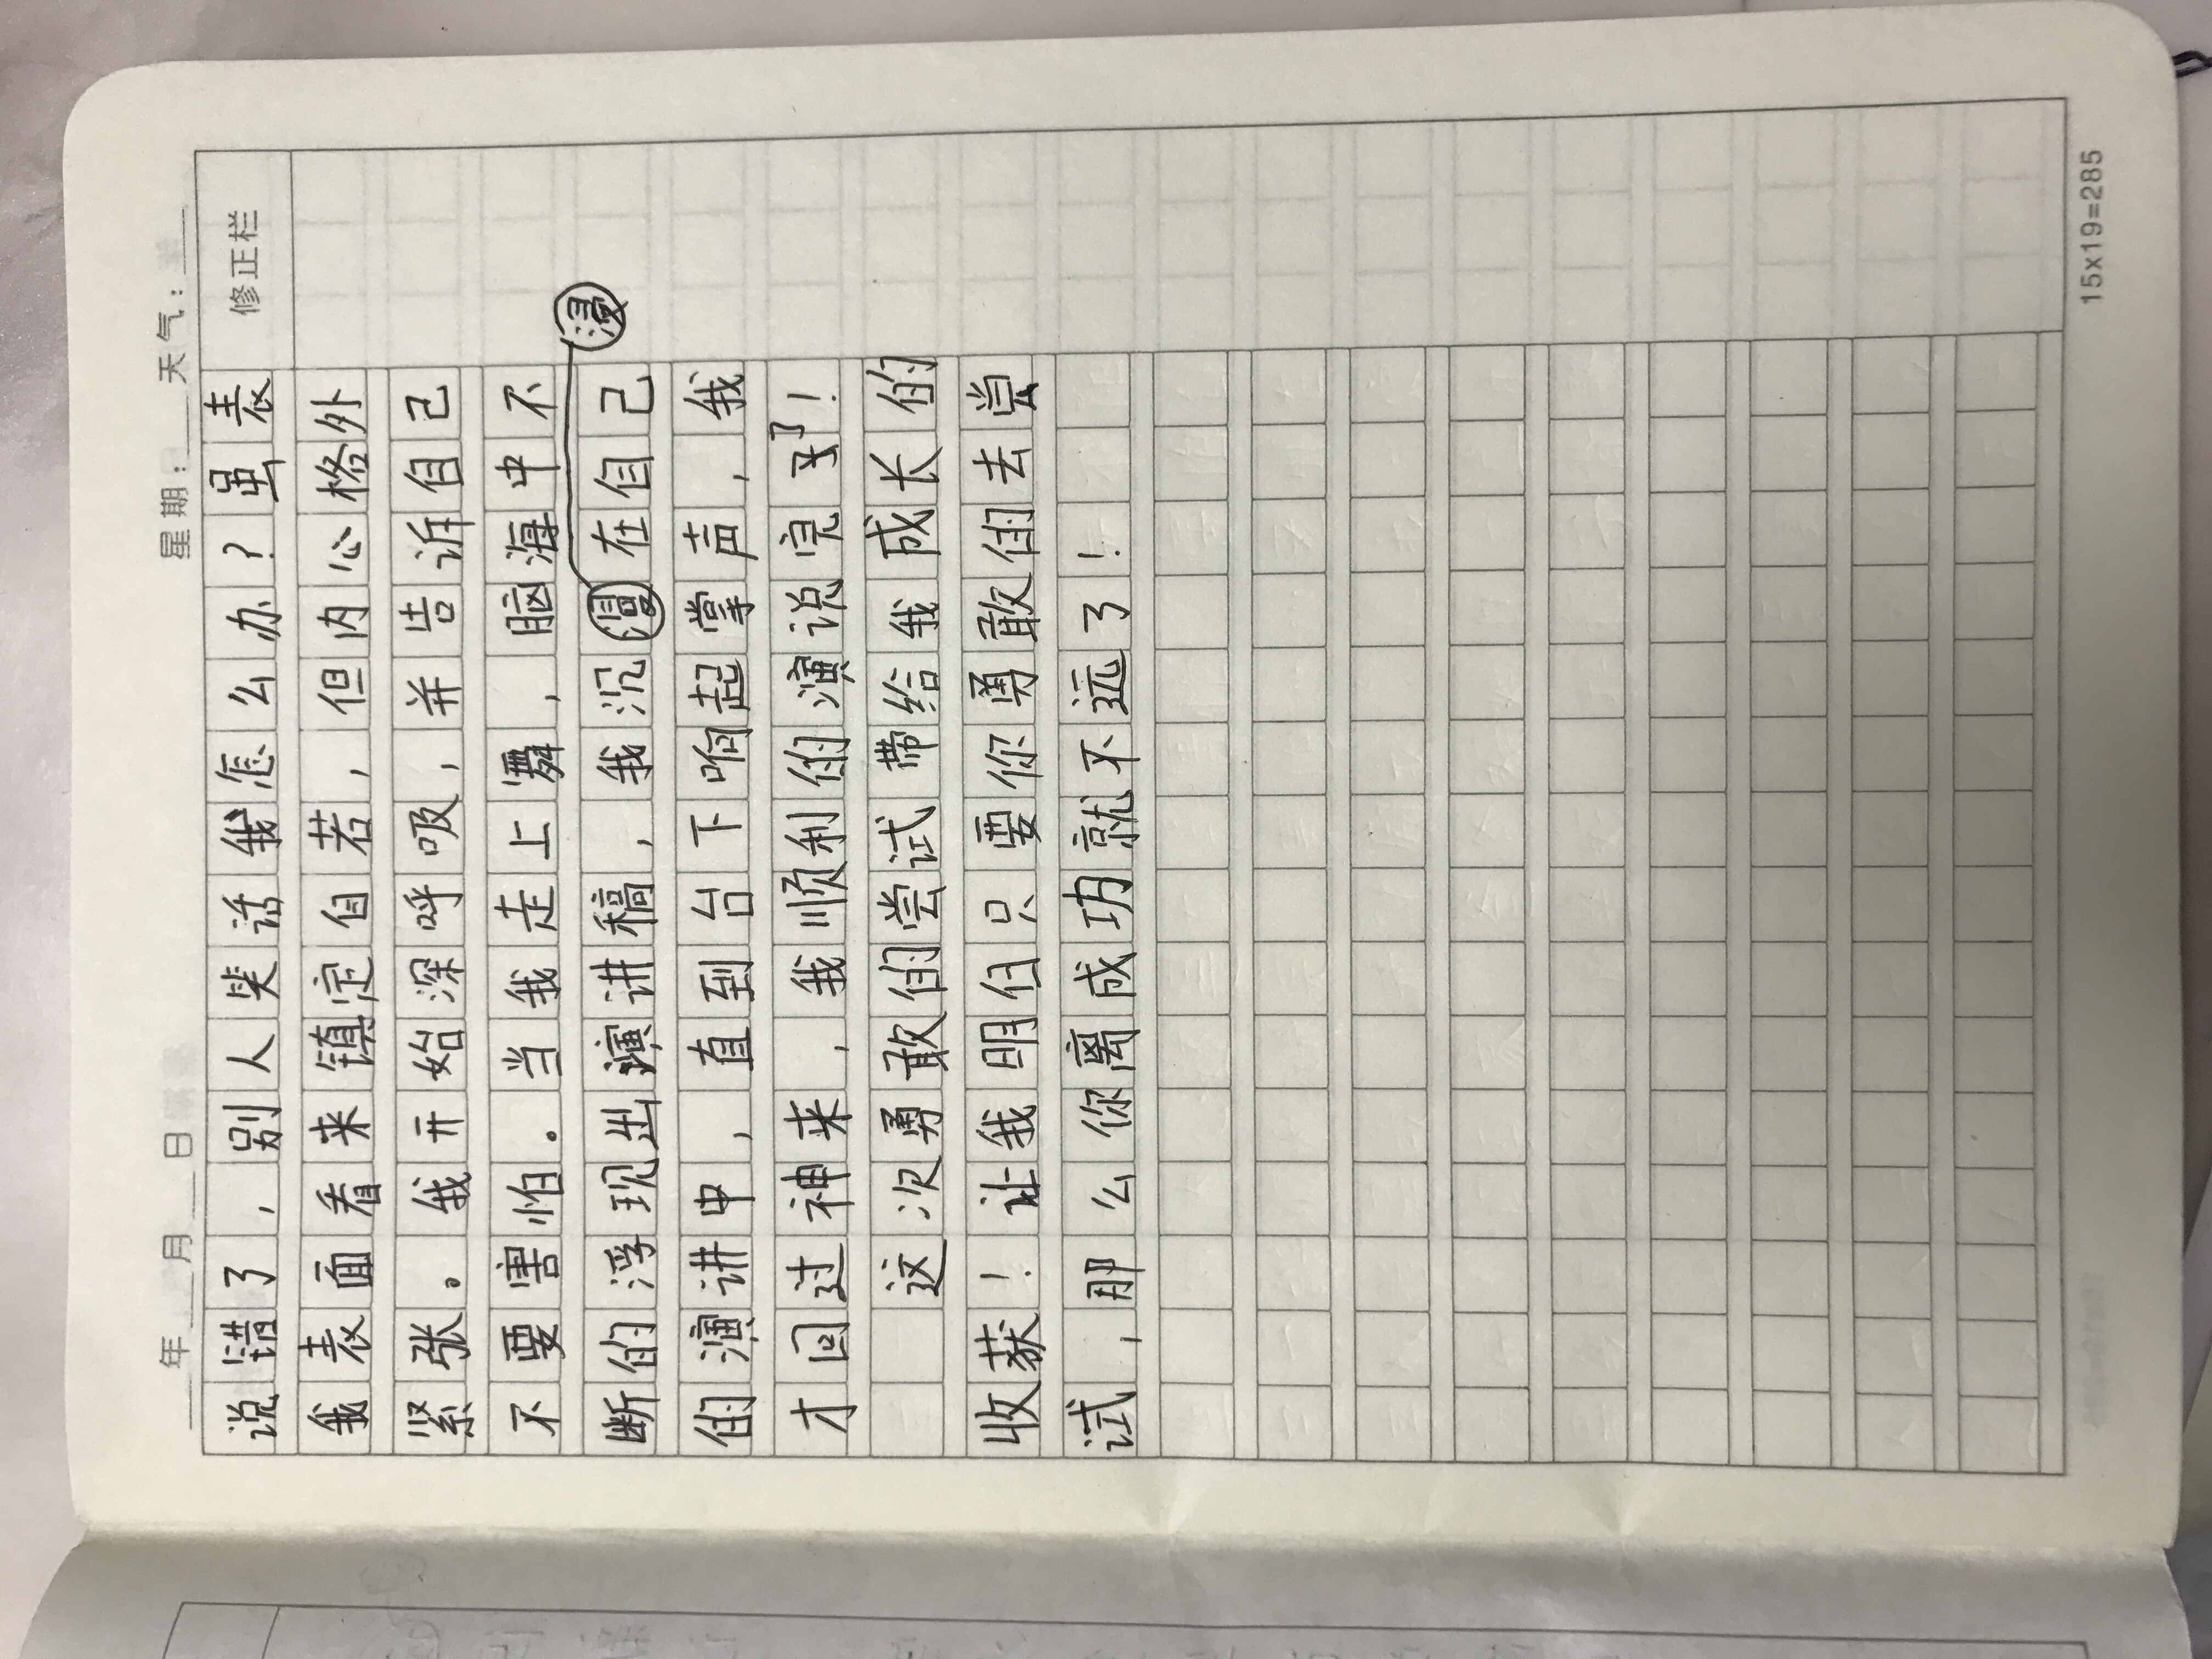 年 月 日 星期: 天气:
修正栏
说错了，别人笑话我怎么办？虽表
我表面看来镇定自若，但内心格外
紧张。我开始深呼吸，并告诉自己
不要害怕。当我走上舞，脑海中不
浸
断的浮现出演讲稿，我沉漫在自己
的演讲中，直到台下响起掌声，我
才回过神来，我顺利的演说完了！
这次勇敢的尝试带给我成长的
收获！让我明白只要你勇敢的去尝
试，那么你离成功就不远了！
15x19=285